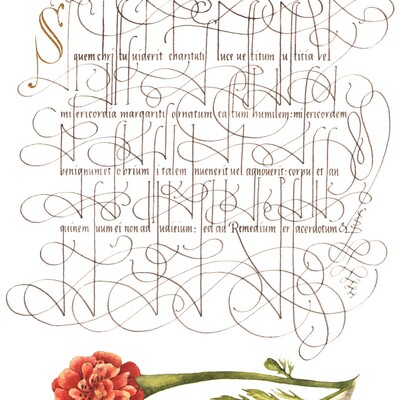 Si quem christus uiderit charitatis luce vestitum iustitia vel
misericordia margaritis ornatum castum humilem: misericordem
benignum et sobrium si talem inuenerit uel agnouerit: corpus et san
guinem suum ei non ad iudicium: sed ad Remedium per sacerdotum